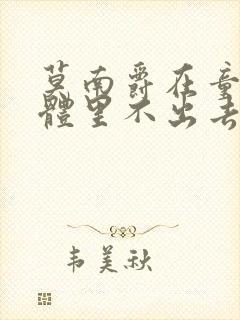 莫南爵在童
體里不出去
韦美秋